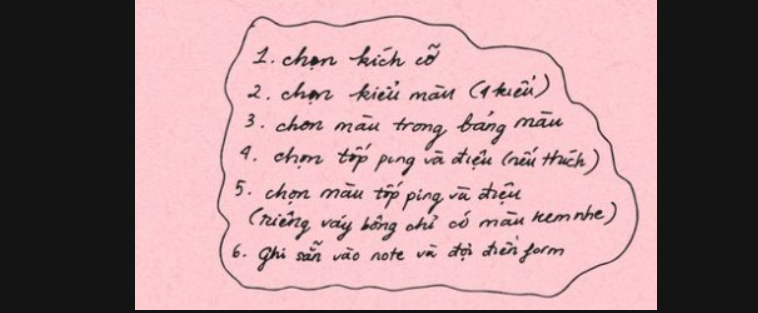 1. chọn kích cỡ
2. chọn kiểu màu (1 kiểu)
3. chọn màu trong bảng màu
4. chọn tốp ping và điệu (nếu thích)
5. chọn màu tốp ping và điệu
(riêng váy bông chỉ có màu kem nhe)
6. Ghi sẵn vào note và đợi điền form